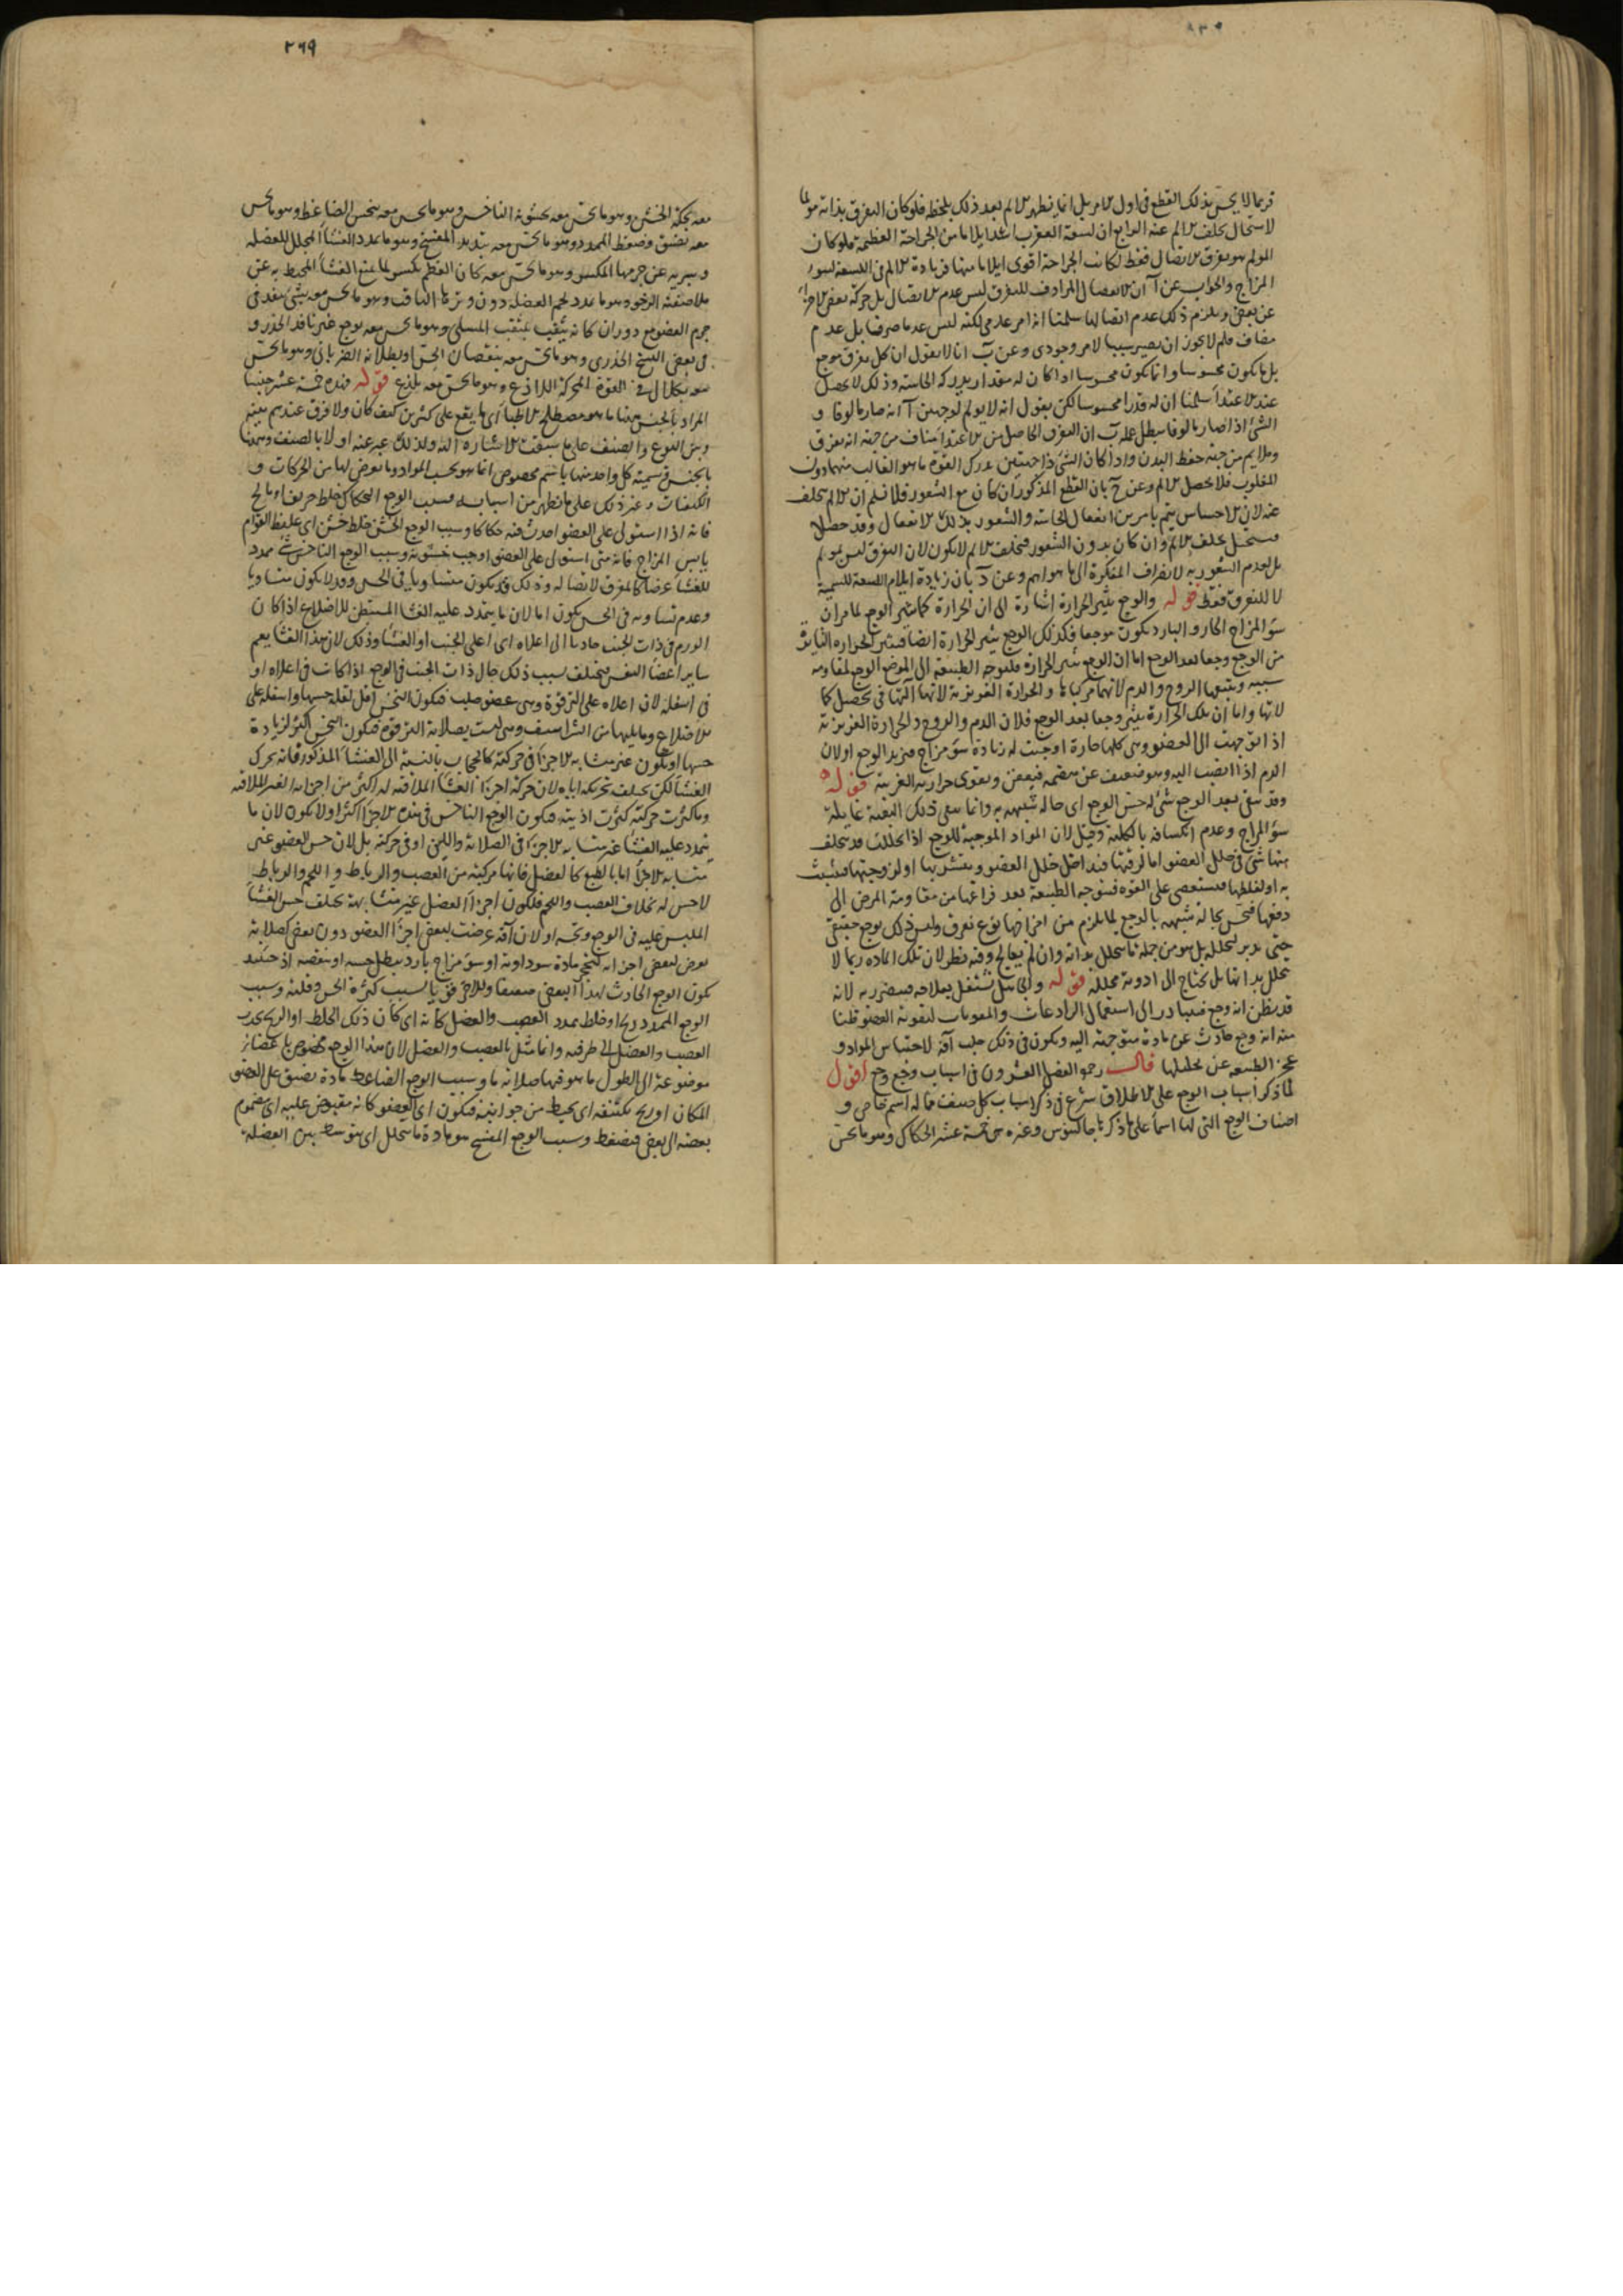 فربما لا يحس بذلك القطع فى اول الامر بل انما يظهر الالم بعد ذلك بلحظة فلو كان التفرق بذاته مؤلما
لاستحال تخلف الالم عنه الرابع ان لسعة العقرب اشد ايلاما من الجراحة العظيمة فلو كان
المولم هو تفرق الاتصال فقط لكانت الجراحة اقوى ايلاما منها فزيادة الالم فى اللسعة لسوء
المزاج والجواب عن آ ان الانفصال المرادف للتفرق ليس عدم الاتصال بل حركة بعض الاجزاء
عن بعض ويلزم ذلك عدم اتصالها سلمنا انه امر عدمى لكنه ليس عدما صرفا بل عدم
مضاف فلم لا يجوز ان يصير سببا لامر وجودى وعن ب انا لا نقول ان كل تفرق موجع
بل ما يكون محسوسا وانما يكون محسوسا اذا كان له مقدار يدركه الحاسة وذلك لا يحصل
عند الاغتذاء سلمنا ان له قدرا محسوسا لكن نقول انه لا يولم لوجهين آ انه صار مالوفا و
الشئ اذا صار مالوفا بطل عمله ب ان التفرق الحاصل من الاغتذاء مناف من جهة انه تفرق
وملايم من جهة حفظ البدن واذا كان الشئ ذا جهتين يدرك القوة ما هو الغالب منهما دون
المغلوب فلا يحصل الالم وعن ج بان القطع المذكور ان كان مع الشعور فلا نسلم ان الالم تخلف
عنه لان الاحساس يتم بامرين انفعال الحاسة والشعور بذلك الانفعال وقد حصلا
فيستحيل تخلف الالم وان كان بدون الشعور فتخلف الالم لا يكون لان التفرق ليس بمولم
بل لعدم الشعور به لانصراف المفكرة الى ما هو اهم وعن د بان زيادة ايلام اللسعة للسمية
لا للتفرق فقط قوله والوجع يثير الحرارة اشارة الى ان الحرارة كما تثير الوجع لما مر ان
سؤ المزاج الحار والبارد يكون موجعا فكذلك الوجع يثير الحرارة ايضا فيثير الحرارة الثايرة
من الوجع وجعا بعد الوجع اما ان الوجع يثير الحرارة فلتوجه الطبيعة الى الموضع الوجع لمقاومة
سببه ويتبعها الروح والدم لانهما مركباها والحرارة الغريزية لانها آلتها فى تحصيل كما
لاتها واما ان تلك الحرارة تثير وجعا بعد الوجع فلان الدم والروح والحرارة الغريزية
اذا توجهت الى العضو وهى كلها حارة اوجبت له زيادة سؤ مزاج فيزيد الوجع او لان
الدم اذا انصب اليه وهو ضعيف عن هضمه فيعفن ويقوى حرارته الغريبة قوله
وقد يبقى بعد الوجع شئ له حس الوجع اى حالة شبيهة به وانما يبقى ذلك البقية غايلة
سؤ المزاج وعدم انكسافه بالكلية وقيل لان المواد الموجبة للوجع اذا تحللت قد يتخلف
منها شئ فى خلل العضو اما لرقتها فيداخل خلل العضو ويتشربها او لزوجتها فيتشبث
به او لغلظها فيستعصى على القوة فيتوجه الطبيعة بعد فراغها من مقاومة المرض الى
دفعها فتحس بحالة شبيهة بالوجع لما يلزم من اخراجها نوع تفرق وليس ذلك بوجع حقيقى
حتى يدبر لتحلله بل هو من جملة ما يتحلل بذاته وان لم يعالج وفيه نظر لان تلك المادة ربما لا
تتحلل بذاتها بل يحتاج الى ادوية محللة قوله والجاهل يشتغل بعلاجه فيضر به لانه
قد يظن انه وجع فيبادر الى استعمال الرادعات والمقويات لتقوية العضو ظنا
منه انه وجع حادث عن مادة متوجهة اليه ويكون فى ذلك جلب آفة لاحتباس المواد و
عجز الطبيعة عن تحليلها قال رحمه الفصل العشرون فى اسباب وجع وجع اقول
لما ذكر اسباب الوجع على الاطلاق شرع فى ذكر اسباب كل صنف مما له اسم خاص و
اصناف الوجع التى لها اسما على ما ذكر ه جالينوس وغيره هى خمسة عشر الحكاك وهو ما يحس
٢٦٩
معه بحكة الخشن وهو ما يحس معه بخشونة الناخس وهو ما يحس معه بنخس الضاغط وهو ما يحس
معه بضيق وضغط الممدد وهو ما يحس معه بتمديد المفسخ وهو ما يمدد الغشا المجلل للعضلة
ويبريه عن جرمها المكسر وهو ما يحس معه كان العظم يكسر لما يمنع الغشا المحيط به عن
ملاصقته الرخو وهو ما يمدد لحم العضلة دون وترها الثاقب وهو ما يحس معه بشئ ينفذ فى
جرم العضو مع دوران كانه يثقب بمثقب المسلى وهو ما يحس معه بوجع غير نافذ الخدر و
فى بعض النسخ الخدرى وهو ما يحس معه بنقصان الحس او بطلانه الضربانى وهو ما يحس
معه بكلال فى القوة المحركة اللاذع وهو ما يحس معه بلذع قوله فهذه خمسة عشر جنسا
المراد بالجنس ههنا ما هو مصطلح الاطبا اى ما يقع على كثيرين كيف كان ولا فرق عندهم بينه
وبين النوع والصنف على ما سبقت الاشارة اليه ولذلك عبر عنه اولا بالصنف وههنا
بالجنس وتسمية كل واحد منها باسم مخصوص انما هو بحسب المواد وما يعرض لها من الحركات و
الكيفيات وغير ذلك على ما يظهر من اسبابه فسبب الوجع الحكاك خلط حريف او مالح
فانه اذا استولى على العضو احدث فيه حكاكا وسبب الوجع الخشن خلط خشن اى غليظ القوام
يابس المزاج فانه متى استولى على العضو اوجب خشونة وسبب الوجع الناخس شئ ممدد
للغشا عرضا كالمفرق لاتصاله وذلك قد يكون متساويا فى الحس وقد لا يكون متساويا
وعدم تساويه فى الحس يكون اما لان ما يتمدد عليه الغشا المستبطن للاضلاع اذا كان
الورم فى ذات الجنب حادبا الى اعلاه اى اعلى الجنب او الغشا وذلك لان هذا الغشا يعم
ساير اعضا التنفس فيختلف بسبب ذلك حال ذات الجنب فى الوجع اذا كانت فى اعلاه او
فى اسفله لان اعلاه على الترقوة وهى عضو صلب فيكون النخس اقل لقلة حسها واسفله على
الاضلاع وما يليها من الشراسيف وهى ليست بصلابة الترقوة فيكون النخس اكثر لزيادة
حسها او يكون غير متشابه الاجزا فى حركته كالحجاب بالنسبة الى الغشا المذكور فانه يحرك
الغشا لكن يختلف تحريكه اياه لان حركة اجزا الغشا الملاقية له اكثر من اجزائه الغير الملاقية
وما كثرت حركته كثرت اذيته فيكون الوجع الناخس فى هذه الاجزا اكثر او لا يكون لان ما
يتمدد عليه الغشا غير متشابه الاجزا فى الصلابة واللين او فى حركته بل لان حس العضو غير
متشابه الاجزا اما بالطبع كالعضل فانها مركبة من العصب والرباط و اللحم والرباط
لا حس له بخلاف العصب واللحم فيكون اجزا العضل غير متشابهة تختلف حس الغشا
الملبس عليه فى الوجع ونخسه او لان آفة عرضت لبعض اجزا العضو دون بعض كصلابة
يعرض لبعض اجزائه لتحجر مادة سوداوية او سؤ مزاج بارد يبطل حسه او ينقصه اذ حينيذ
يكون الوجع الحادث لهذا البعض ضعيفا وللاخر قويا بسبب كثرة الحس وقلته وسبب
الوجع الممدد ريح او خلط يمدد العصب والعضل كانه اى كان ذلك الخلط او الريح يجذب
العصب والعضل الى طرفيه وانما مثل بالعصب والعضل لان هذا الوجع مخصوص باعضا
موضوعة الى الطول ما هو فيها صلابة ما وسبب الوجع الضاغط مادة يضيق على العضو
المكان او ريح يكتنفه اى يحيط من جوانبه فيكون اى العضو كانه مقبوض عليه اى مضموم
بعضه الى بعض فيضغط وسبب الوجع المفسخ هو مادة ما يتحلل اى يتوسط بين العضلة